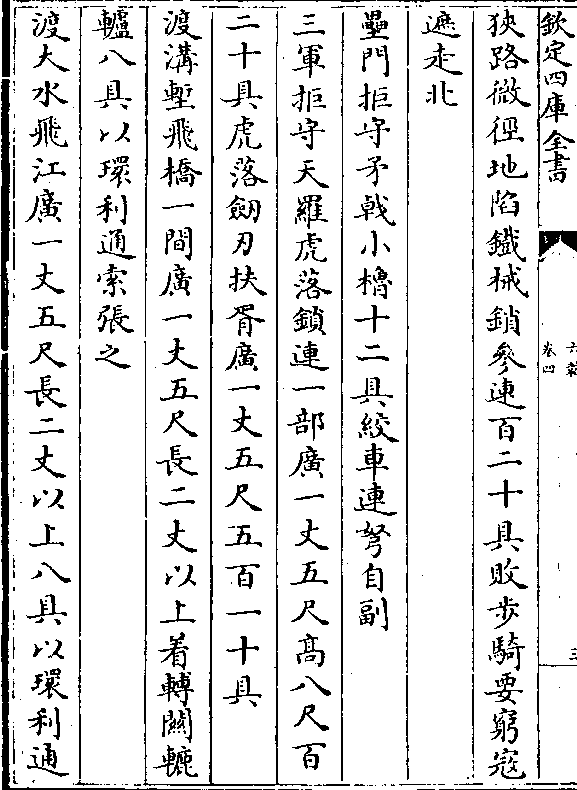 欽定四庫全書
六韜
卷四
三
狹路微徑地䧟鐵械鎖參連百二十具敗步騎要窮寇
遮走北
壘門拒守矛戟小櫓十二具絞車連弩自副
三軍拒守天羅虎落鎖連一部廣一丈五尺高八尺百
二十具虎落劒刃扶胥廣一丈五尺五百一十具
渡溝塹飛橋一間廣一丈五尺長二丈以上着轉關轆
轤八具以環利通索張之
渡大水飛江廣一丈五尺長二丈以上八具以環利通